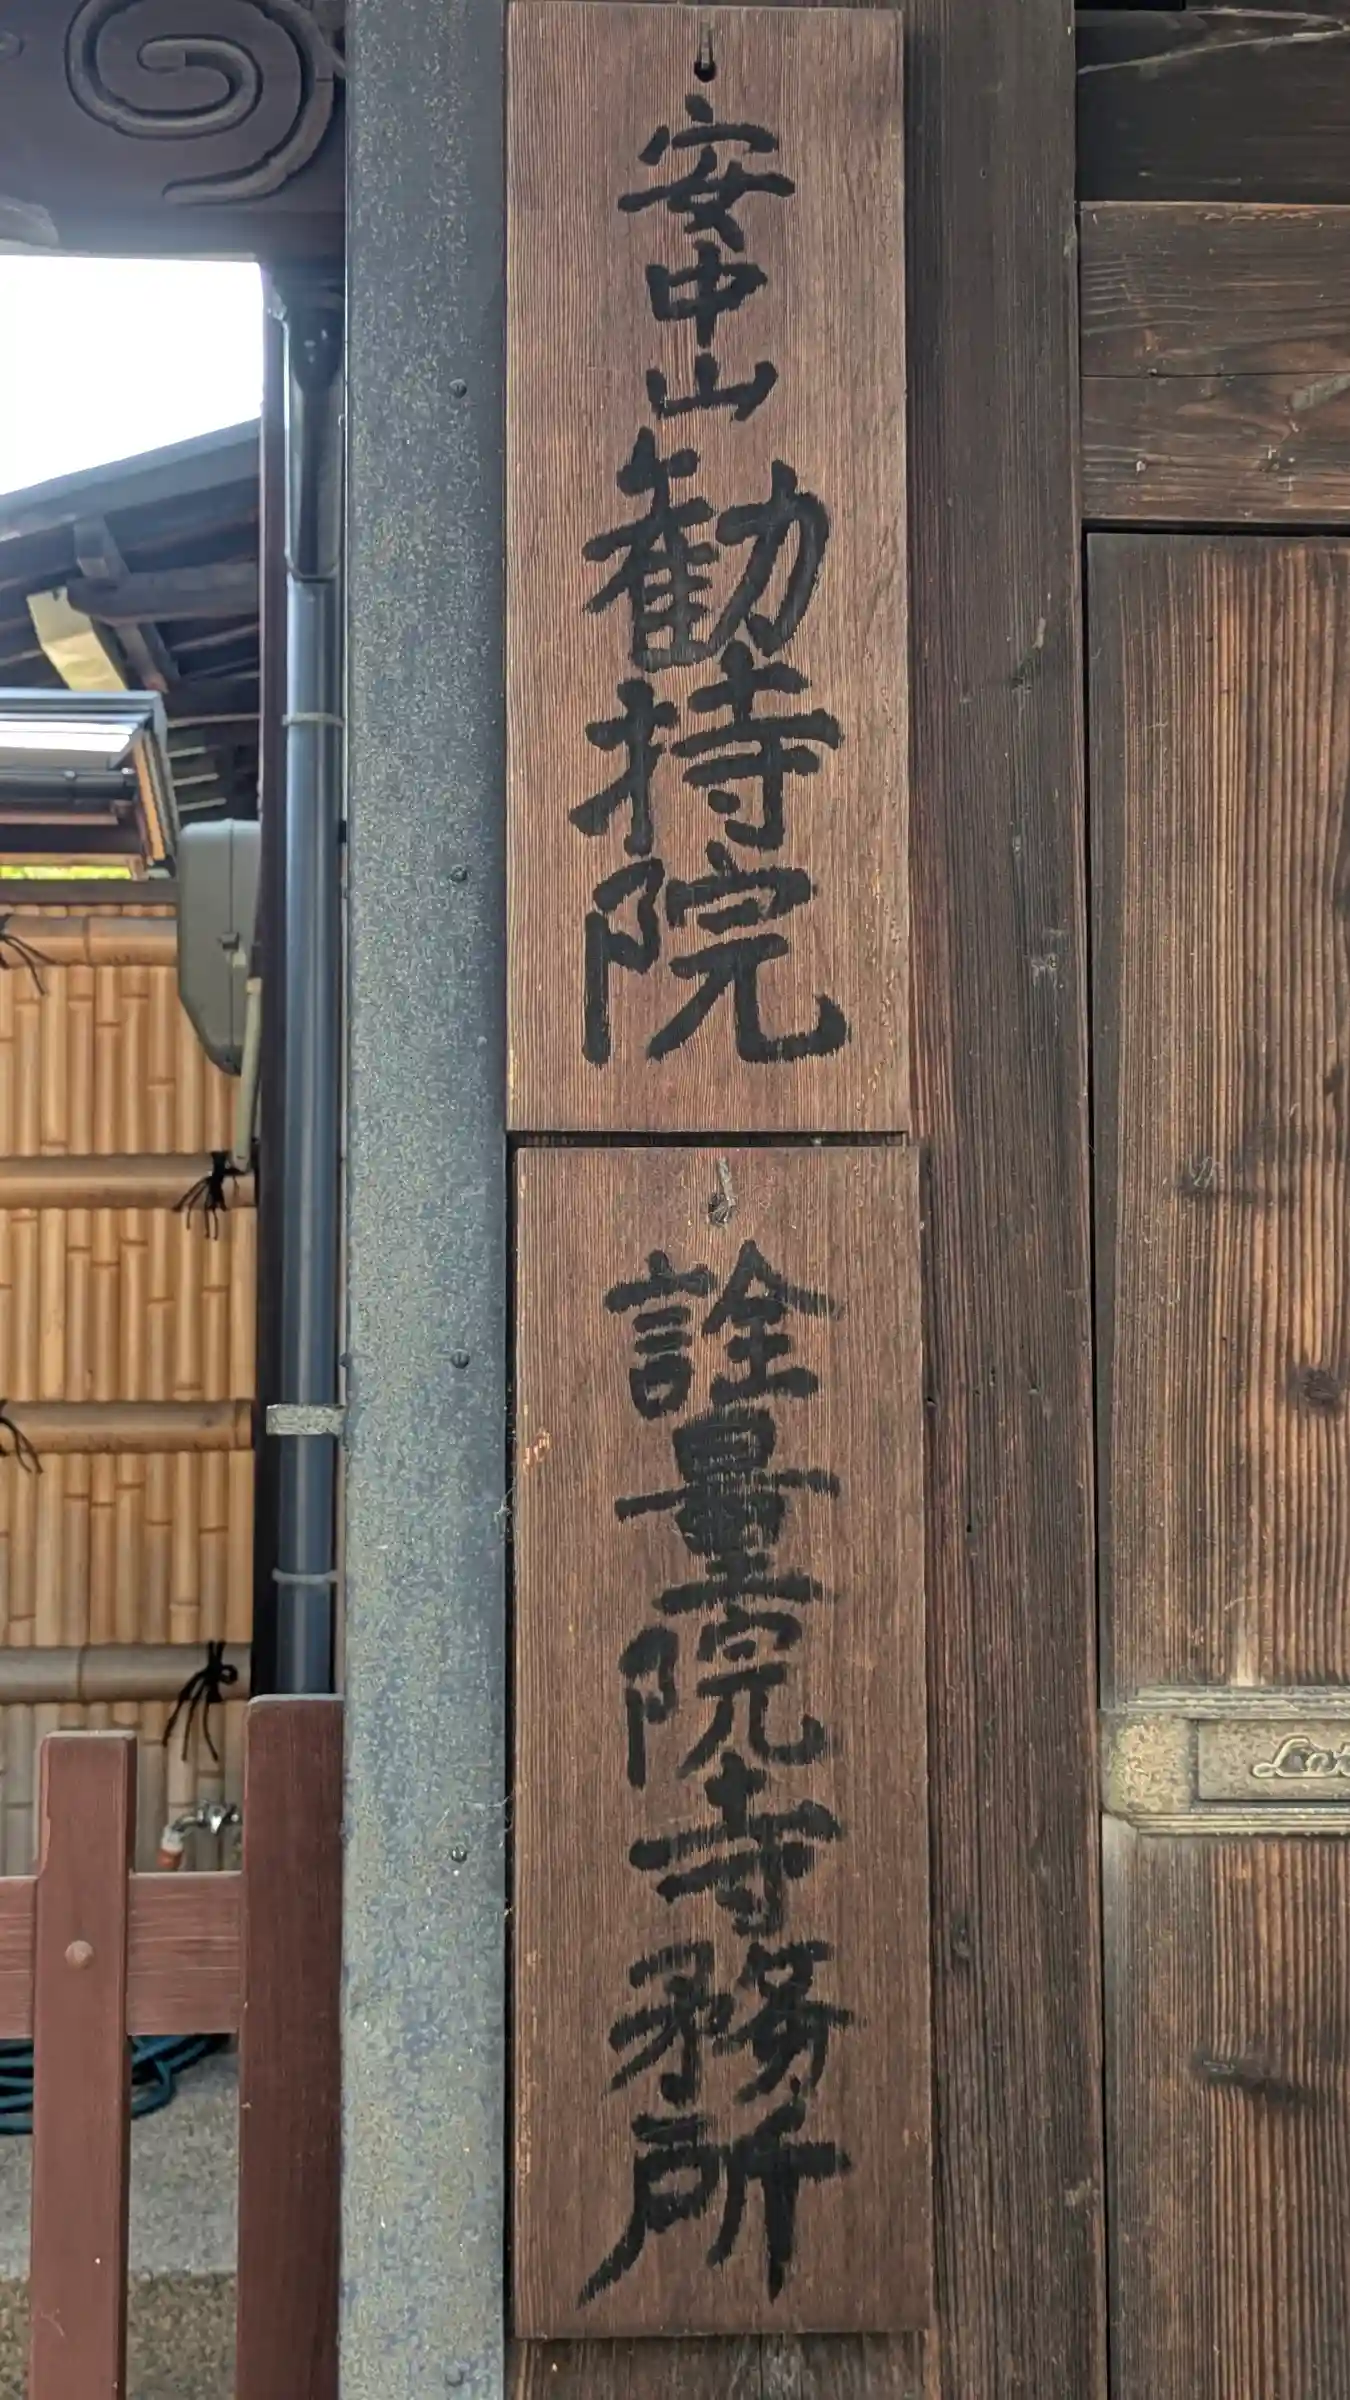 安中山勧持院
詮量院寺務所
Let